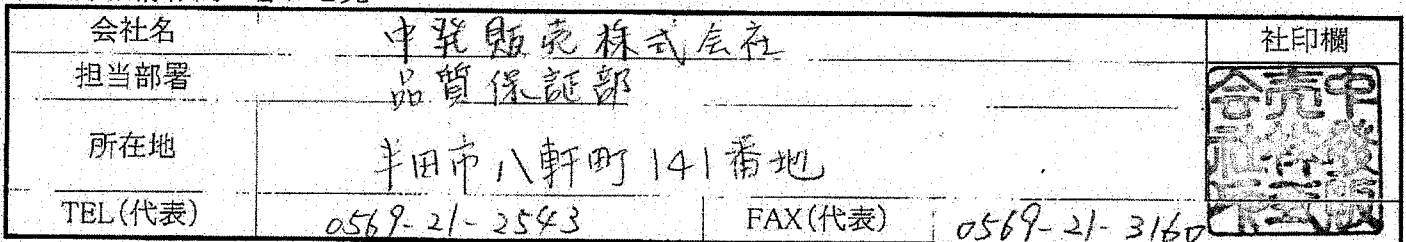 会社名 中発販売株式会社 社印欄
担当部署 品質保証部
所在地 半田市八軒町141番地
TEL(代表) 0569-21-2543 FAX(代表) 0569-21-3160